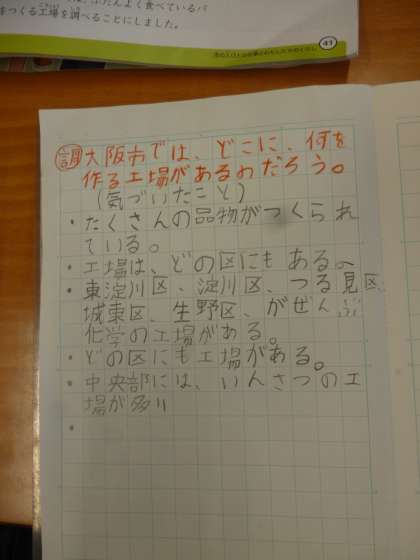 ふだんよく食べているパ
をつくる工場を調べることにしました。
41
調 大阪市では、どこに、何を
作る工場があるのだろう。
(気づいたこと)
・たくさんの品物がつくられ
ている。
・工場は、どの区にもある。
・東淀川区、淀川区、つる見区、
城東区、生野区、がぜんぶ
化学の工場がある。
・どの区にも工場がある。
・中央部には、いんさつの工
場が多い
・